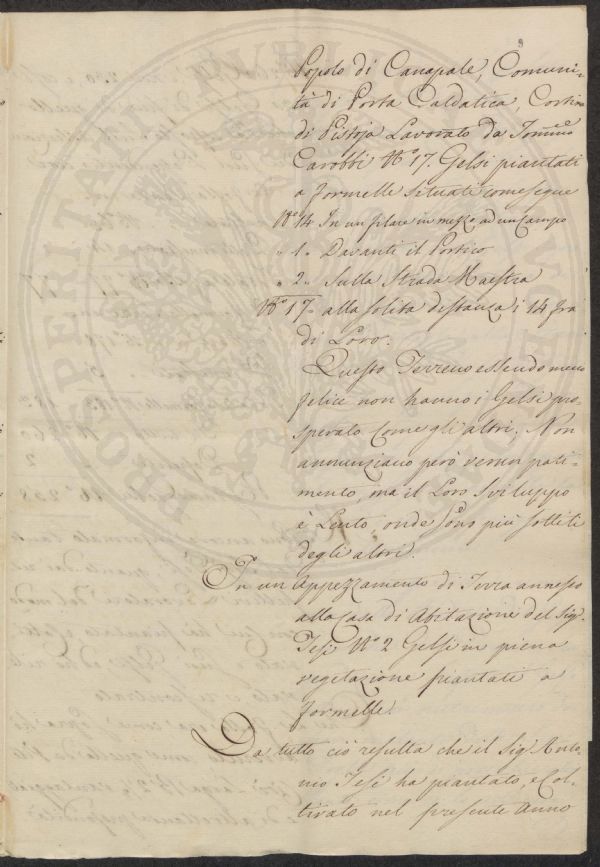 Popolo di Canapale, Comuni-
tà di Porta Caldatica, Cortina
di Pistoja Lavorato da Tommo
Carobbi No 17. Gelsi piantati
a formelle situati come segue
No 14 In un filare in mezzo ad un Campo
" 1. Davanti il Portico
" 2. Sulla Strada Maestra
No 17. alla solita distanza i 14 fra
di Loro.
Questo Terreno essendo meno
felice non hanno i Gelsi pro-
sperato come gli altri; Non
annunziano però verun pati-
mento, ma il Loro Sviluppo
è Lento, onde sono più sottili
degli altri.
In un Appezzamento di Terra annesso
alla Casa di Abitazione del Sigr
Tesi No 2 Gelsi in piena
vegetazione piantati a
formelle.
Da tutto ciò resulta che il Sigr Anto-
nio Tesi ha piantato, e Col-
tivato nel presente Anno
PROSPERITATI PUBLICAE